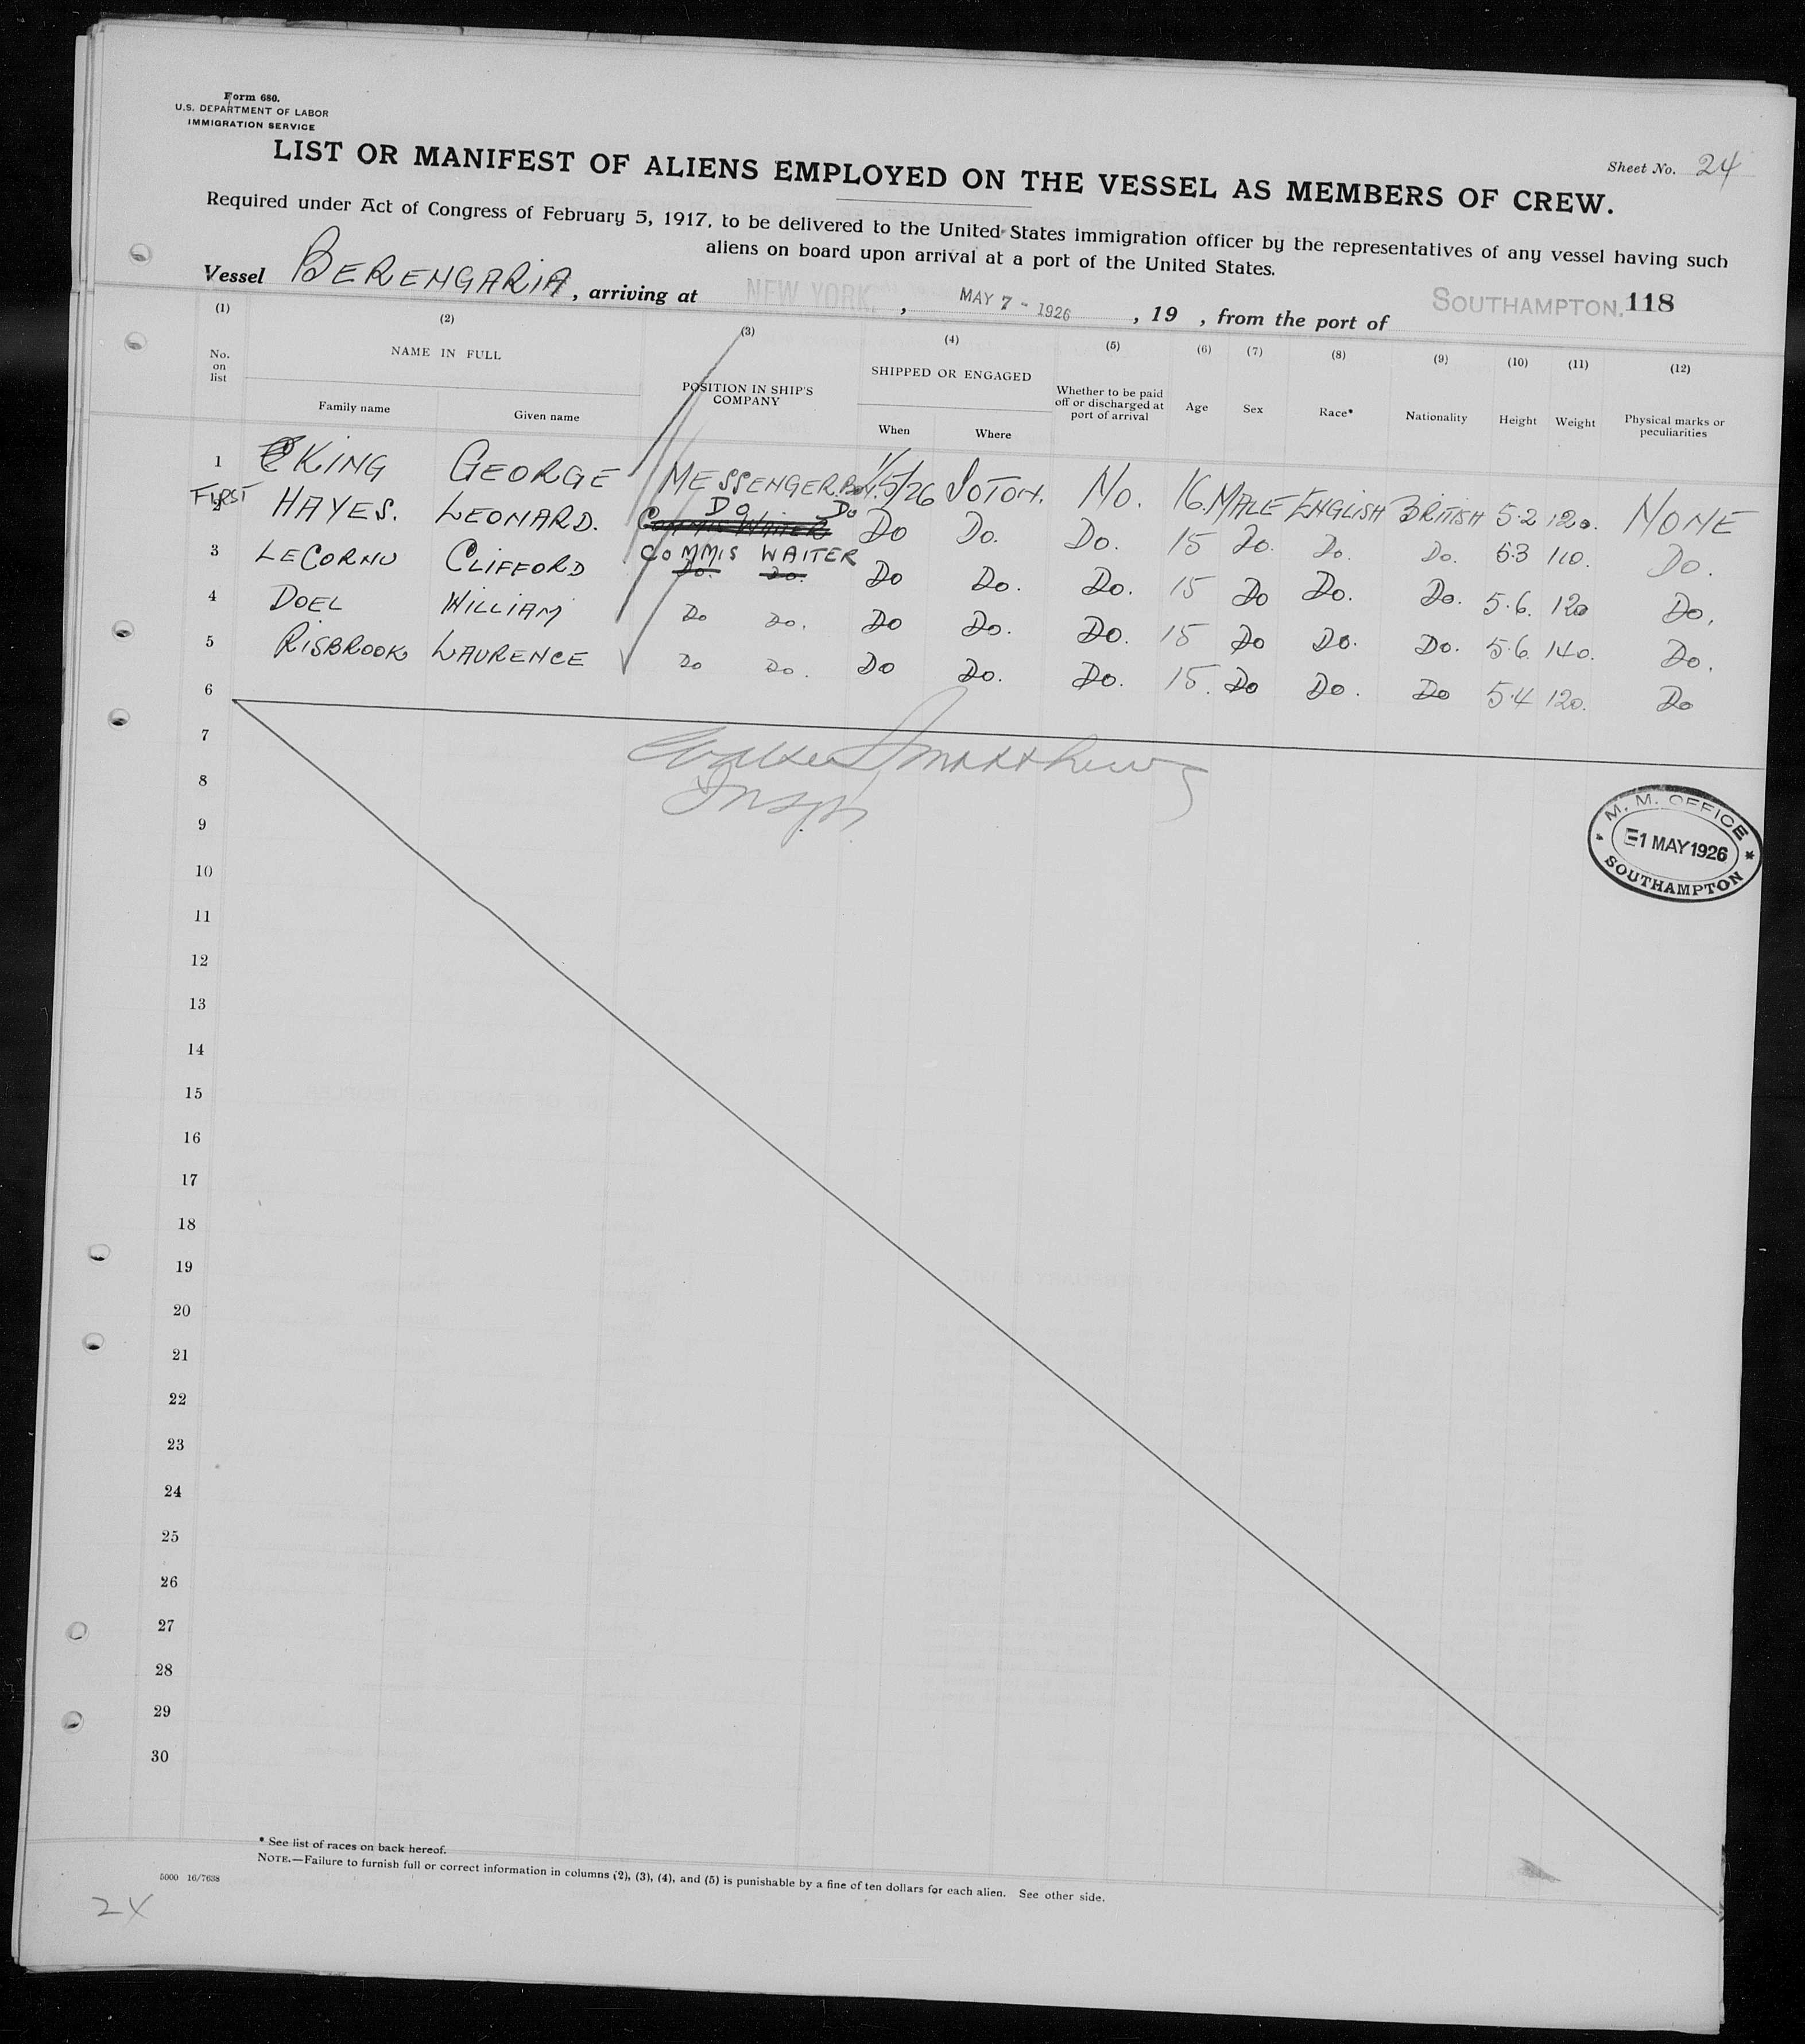 Form 680.
U.S. DEPARTMENT OF LABOR
IMMIGRATION SERVICE
Sheet No. 24
LIST OR MANIFEST OF ALIENS EMPLOYED ON THE VESSEL AS MEMBERS OF CREW.
Required under Act of Congress of February 5, 1917, to be delivered to the United States immigration officer by the representatives of any vessel having such
aliens on board upon arrival at a port of the United States.
Vessel BERENGARIA, arriving at NEW YORK, , MAY 7 - 1926 , 19 , from the port of SOUTHAMPTON. 118
(1) (2) (3) (4) (5) (6) (7) (8) (9) (10) (11) (12)
No. on list NAME IN FULL Family name Given name POSITION IN SHIP'S COMPANY SHIPPED OR ENGAGED When Where Whether to be paid off or discharged at port of arrival Age Sex Race* Nationality Height Weight Physical marks or peculiarities
1 KING GEORGE MESSENGER. BOY. 1/5/26 SOTON. NO. 16. MALE ENGLISH BRITISH 5·2 120. NONE
FIRST
2 HAYES. LEONARD. DO DO COMMIS WAITER DO DO. DO. 15 DO. DO. DO. 5·3 110. DO.
3 LECORNU CLIFFORD COMMIS WAITER DO. DO. DO DO. DO. 15 DO DO. DO. 5·6. 120 DO.
4 DOEL WILLIAM DO DO. DO DO. DO. 15 DO DO. DO. 5·6. 140. DO.
5 RISBROOK LAURENCE DO DO. DO DO. DO. 15. DO DO. DO 5·4 120. DO
6
7
Walter Matthews
8
Insp
9
M. M. OFFICE
1 MAY 1926
SOUTHAMPTON
10
11
12
13
14
15
16
17
18
19
20
21
22
23
24
25
26
27
28
29
30
* See list of races on back hereof.
NOTE.—Failure to furnish full or correct information in columns (2), (3), (4), and (5) is punishable by a fine of ten dollars for each alien. See other side.
5000 16/7638
24